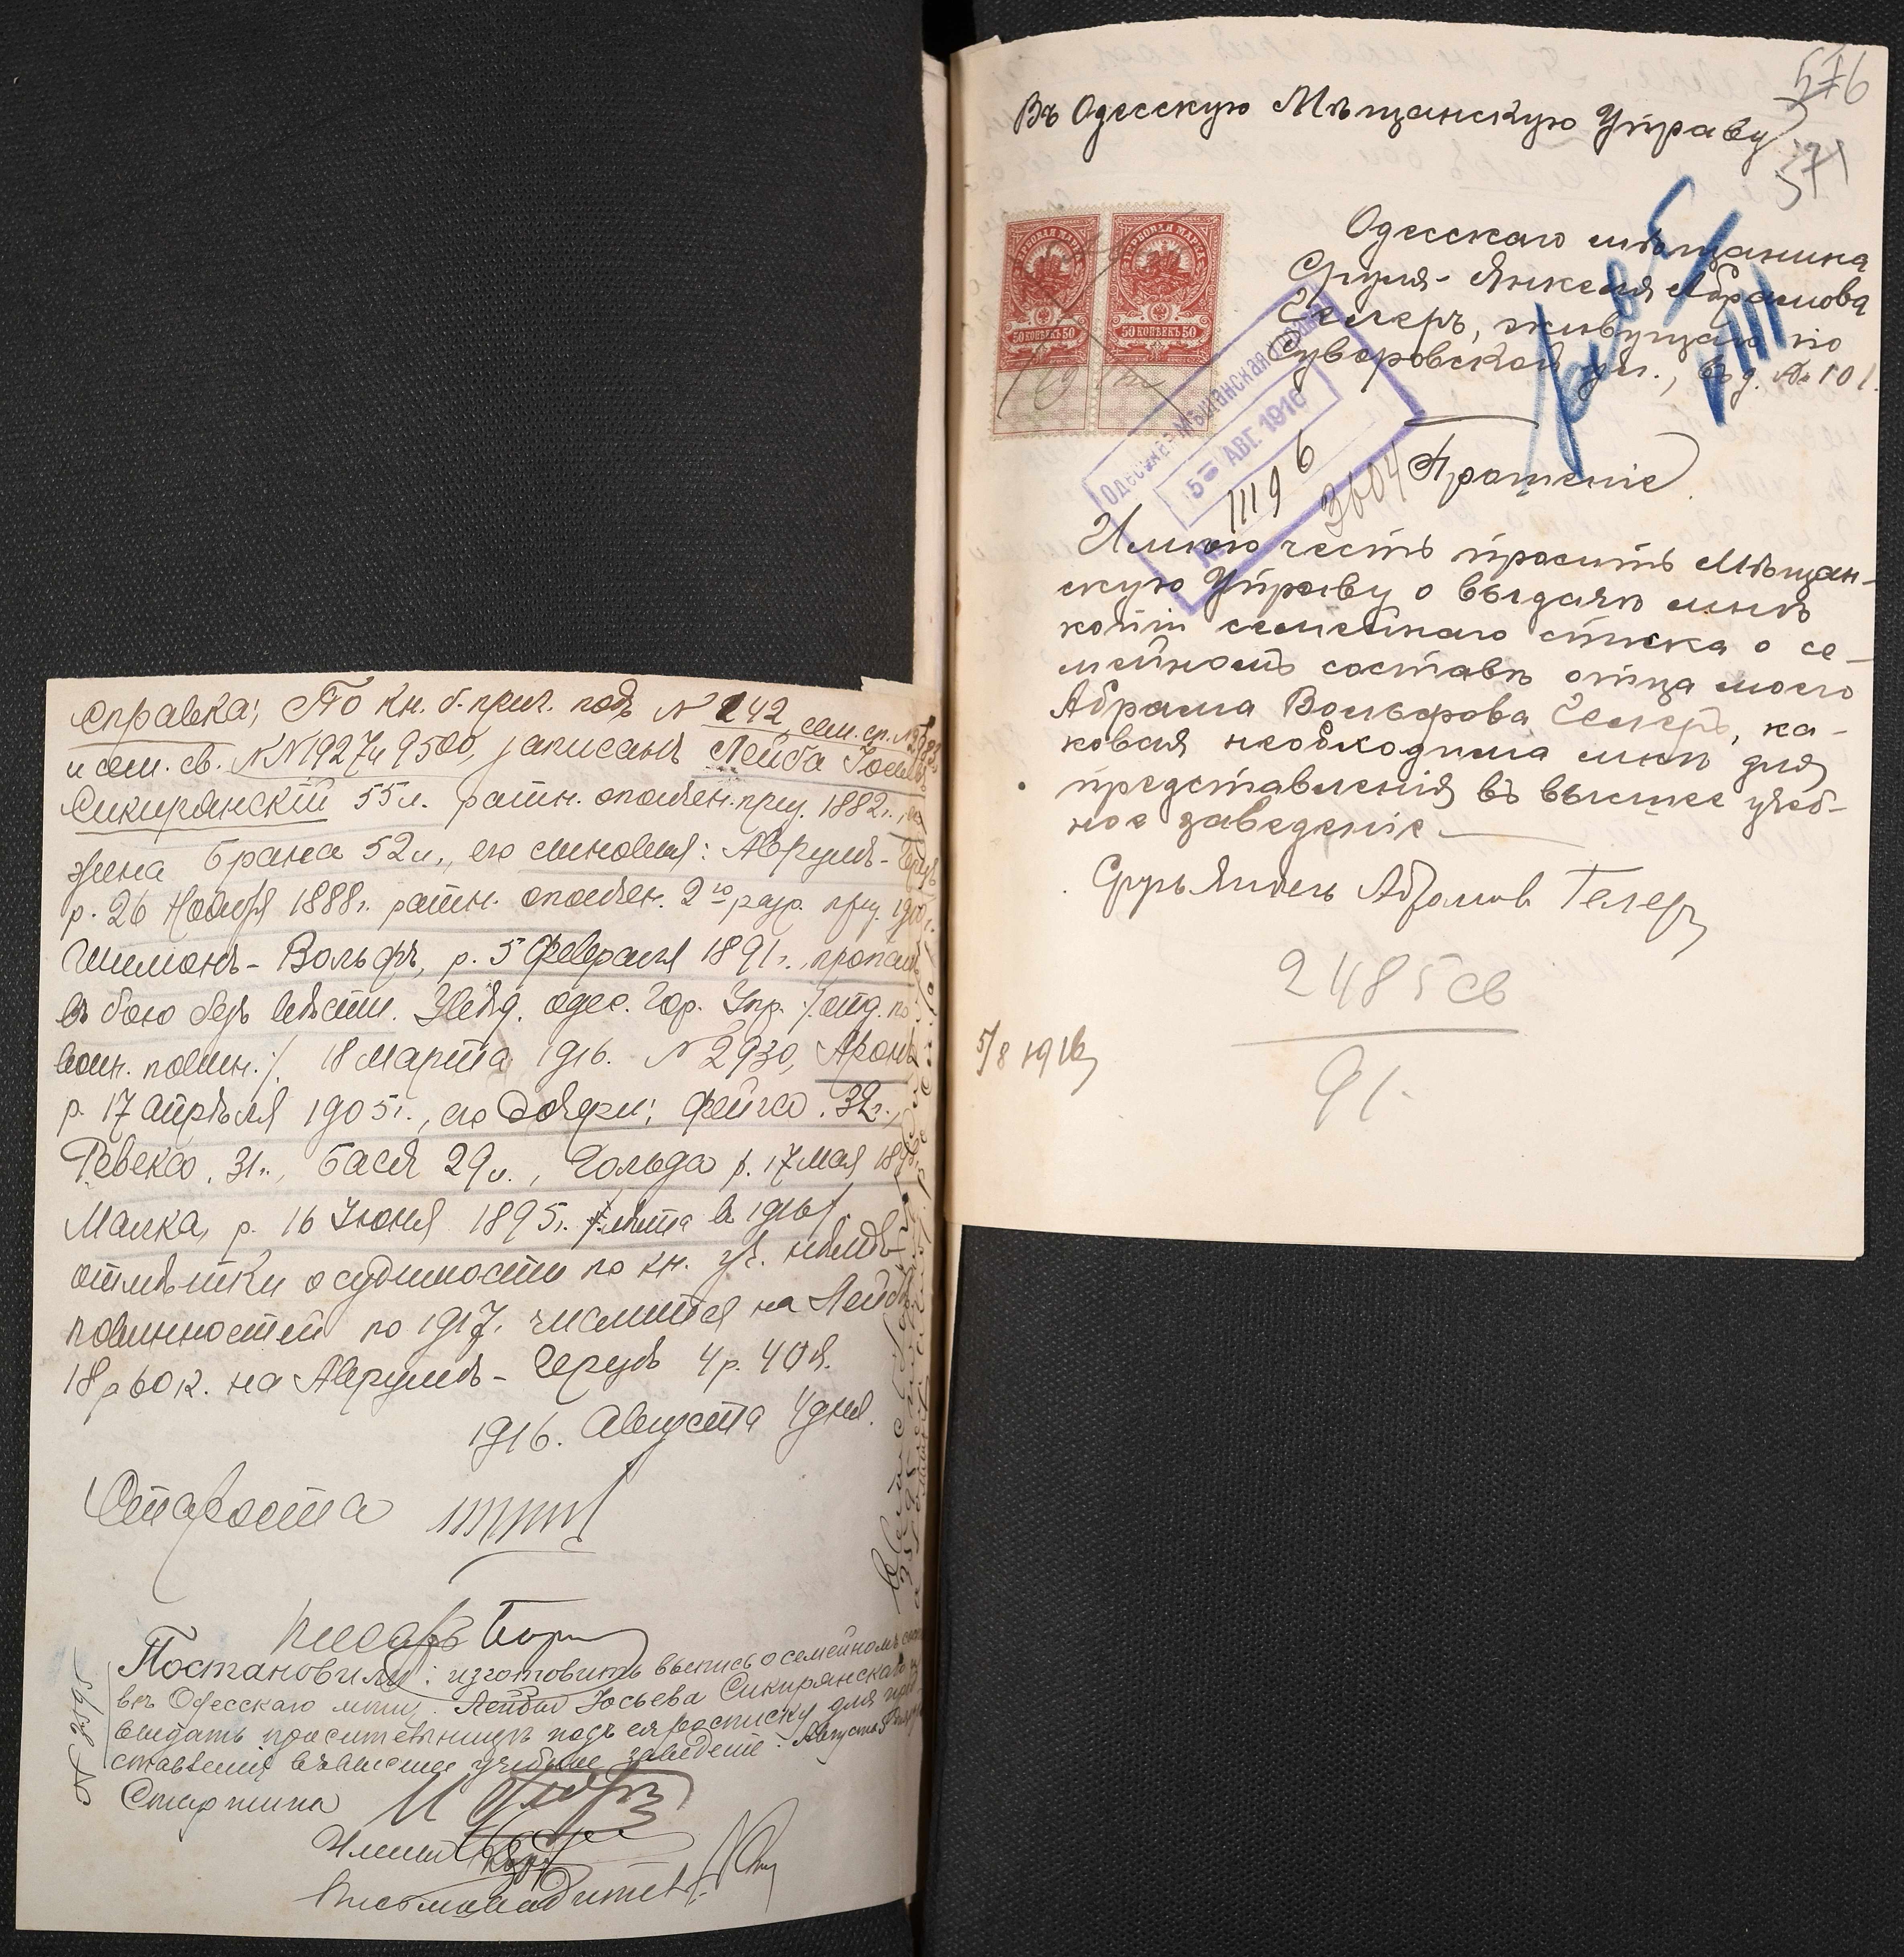 Справка: По кн. б.приг. подъ № 242, сем. сп. №
и сем. св. №№ 1927 и 9500, записанъ Лейба Іось
Сикирянскій 55 л. ратн. ополчен. приз. 1882 г., его
жена Брана 52 л., его сыновья: Аврумъ-Герцъ
р. 26 Ноября 1888 г. ратн. ополчен. 2го разр. приз.
Шимонъ-Вольфъ, р. 5 Февраля 1891 г., пропалъ
въ бою безъ вѣсти. Увѣд. Одес. Гор. Упр. /:отд. по
воин. повин.:/ 18 Марта 1916. № 2930, Аронъ
р. 17 Апрѣля 1905 г., его дочери: Фейга 32 г.,
Ревека 31 г., Бася 29 л., Гольда р. 17 Мая
Малка, р. 16 Іюня 1895 г. /:лѣта въ 1916/.
отмѣтки о судимости по кн. уч. нѣтъ
повинностей по 1917 г. числится на Лейбѣ
18 р 60 к. на Аврумѣ-Герцѣ 4 р. 40 к.
1916. Августа 4 дня.
Староста
Писарь
Постановили: изготовить выпись о семейномъ соста
вѣ Одесскаго мѣщ. Лейбы Іосьева Сикирянскаго и
выдать просительницѣ подъ ея росписку для пред
ставленія въ высшее учебное заведеніе. Августа 5
№ 3595
Старшина
Члены
Письмоводитель
576
571
Въ Одесскую Мѣщанскую Управу
Одесскаго мѣщанина
Сруля-Янкеля Абрамова
Гелеръ, живущаго по
Суворовской ул., въ д. № 101.
ГЕРБОВАЯ МАРКА
50 КОПѢЕКЪ 50
ГЕРБОВАЯ МАРКА
50 КОПѢЕКЪ 50
Одесская Мѣщанская Управа
5 АВГ. 1916
№ 11196
Прошеніе
Имѣю честь просить Мѣщан-
скую Управу о выдачѣ мнѣ
копіи семейнаго списка о се-
мейномъ составѣ отца моего
Абрама Вольфова Гелеръ, ка-
ковая необходима мнѣ для
представленія въ высшее учеб-
ное заведеніе
Сруль Янкель Абрамов Гелеръ
2485 св
91.
5/8 1916